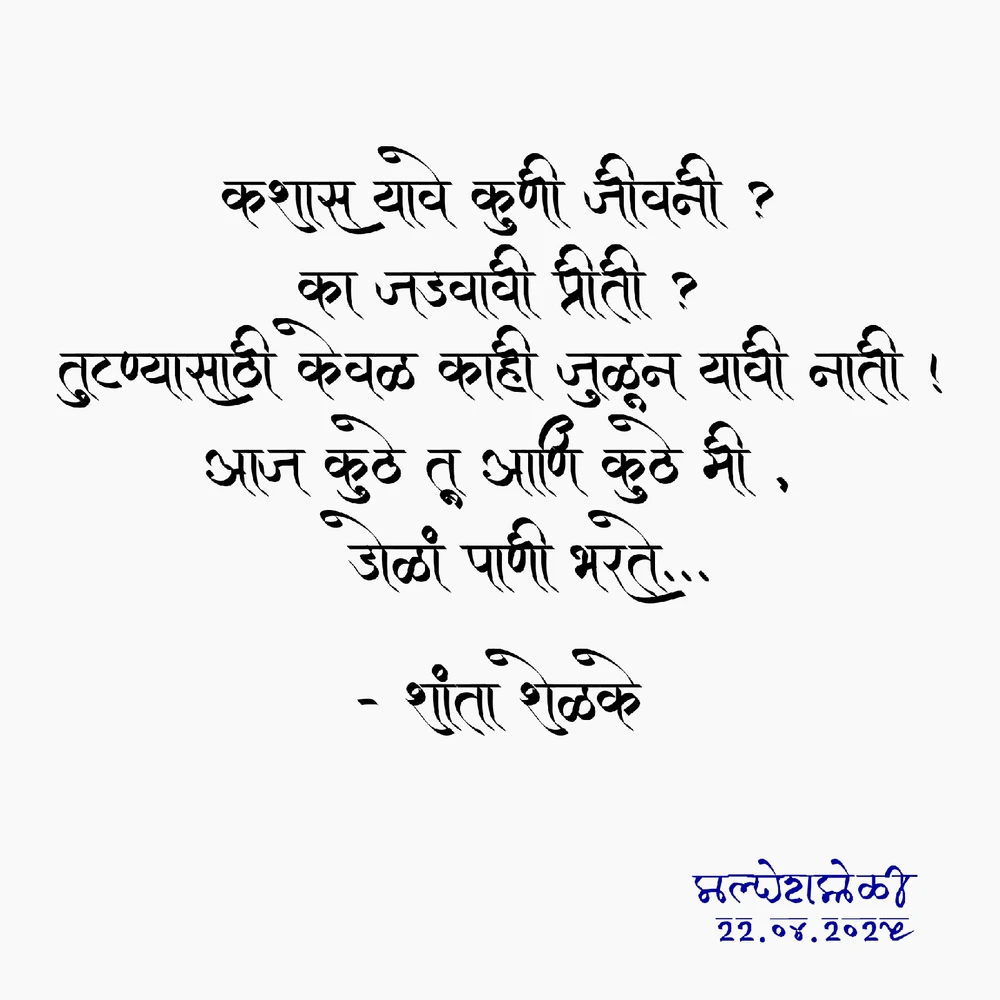 कशास यावे कुणी जीवनी ?
का जडवावी प्रीती ?
तुटण्यासाठी केवळ काही जुळून यावी नाती !
आज कुठे तू आणि कुठे मी ,
डोळां पाणी भरते...
- शांता शेळके
२२.०४.२०२५